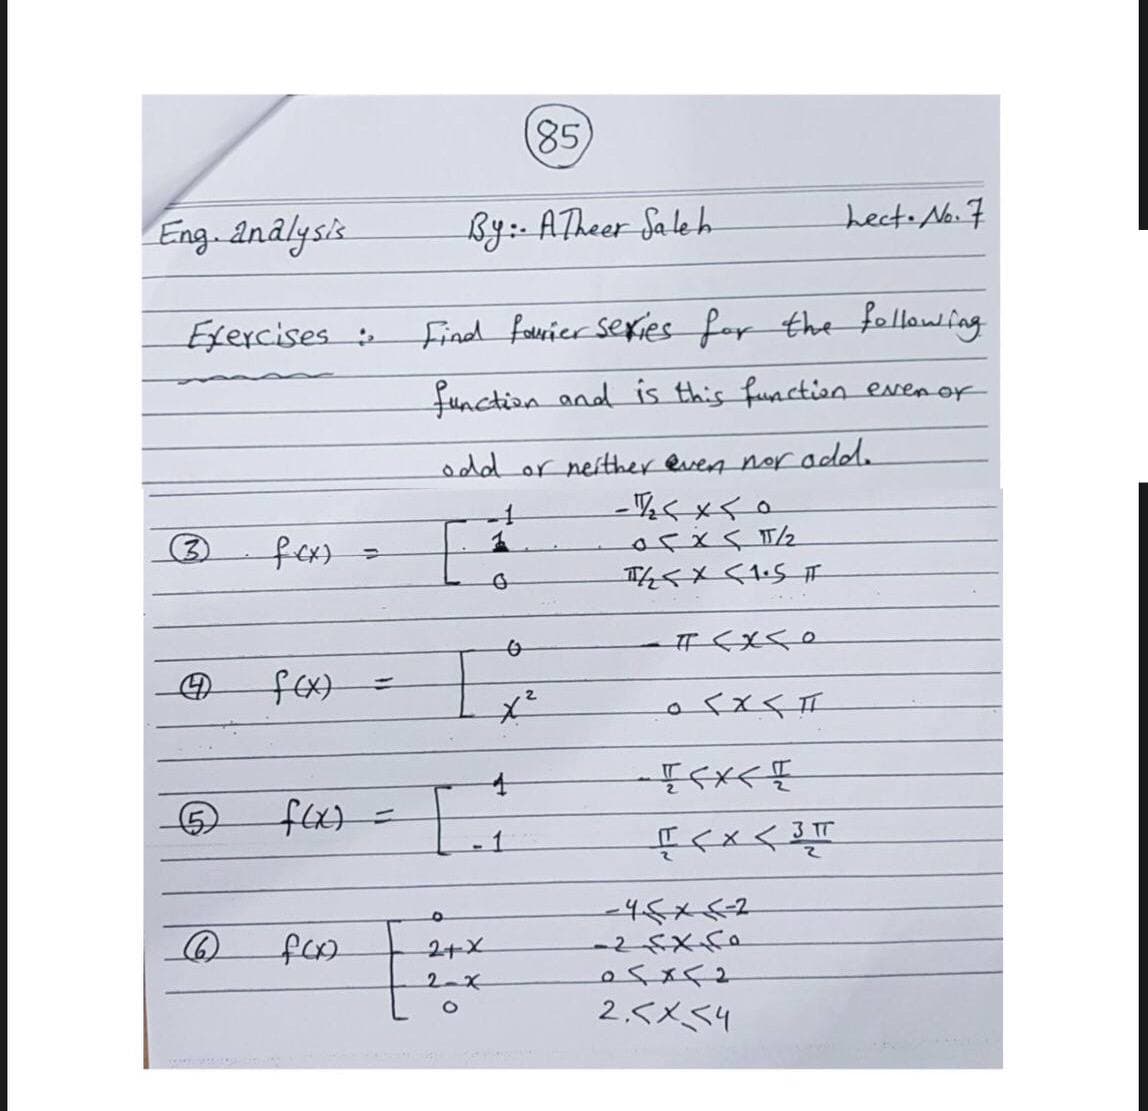 85
Eng. analysis By:- ATheer Saleh Lect. No. 7
Exercises :- Find fourier series for the following
function and is this function even or
odd or neither even nor odd.
③ f(x) = [ -1 -π/2 < x < 0
1 0 < x < π/2
0 π/2 < x < 1.5 π
④ f(x) = [ 0 -π < x < 0
x² 0 < x < π
⑤ f(x) = [ 1 -π/2 < x < π/2
-1 π/2 < x < 3π/2
⑥ f(x) [ 0 -4 ≤ x ≤ -2
2+x -2 ≤ x ≤ 0
2-x 0 ≤ x ≤ 2
0 2 ≤ x ≤ 4